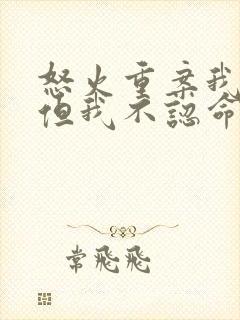 怒火重案我
但我不認命
常飛飛